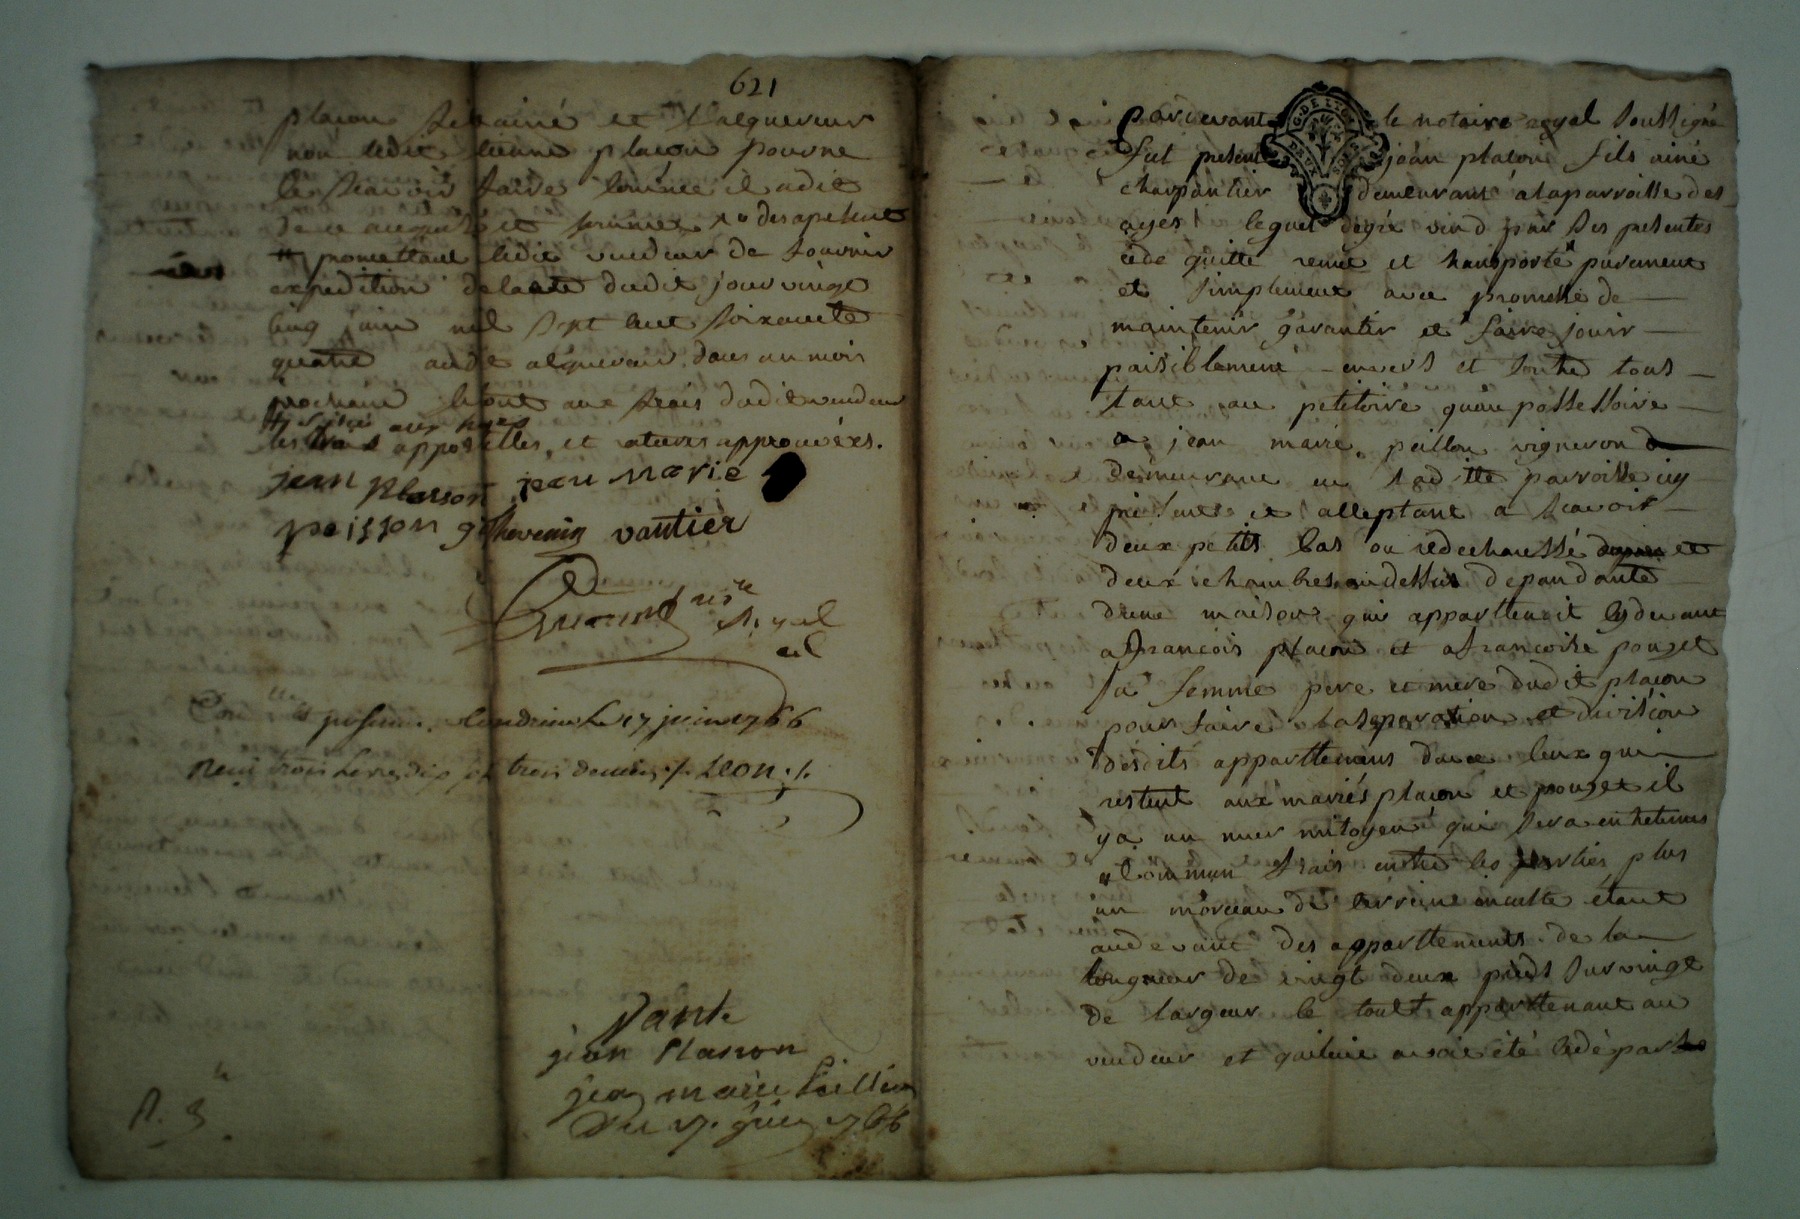 621
placon fils ainé et l'acquereur
non ledit etienne placon pour ne
le scavoir faire sommé il a dit
de ce enquis et sommé
promettant ledit vendeur de fournir
expedition de lacte dudit jour vingt
cinq juin mil sept cent soixante
quatre audit acquereur dans un mois
prochain le tout aux frais dudit vendeur
les apposttilles, et ratures approuvéxs.
jean plasson jean marie
peisson g thevenin vantier
nre
Royal
a jesume. le 17 juin 1766
Recu trois livres dix s trois deniers ./. LEON ./.
Vante
jean Plasson
jean marie Paillion
Du 17. juin 1766
R. 3
Pardevant le notaire royal soussigné
fut present jean placon fils ainé
charpantier demeurant a la parroisse des
ayes lequel de gré vend par ses presentes
cede quitte remet et transporte purement
et simplement avec promesse de
maintenir garantir et faire jouir
paisiblement envers et contre tous
tant au petitoire quau possessoire
a jean marie peillon vigneron
demeurant en laditte parroisse icy
present et acceptant a scavoir
deux petits bas ou redechaussé et
deux chambres au dessus depandante
dune maison qui apparttenoit cydevant
a francois placon et a francoise pouzet
sa femme pere et mere dudit placon
pour faire la separation et division
desdits apparttemens davec ceux qui
restent aux mariés placon et pouzet il
y a un muer mitoyen qui sera entretenus
a common frais entre les parties plus
un morceau de terrein inculte étant
audevant des apparttements de la
longueur de vingt deux pieds sur vingt
de largeur le tout apparttenant au
vendeur et qui luy avoit été cedé par